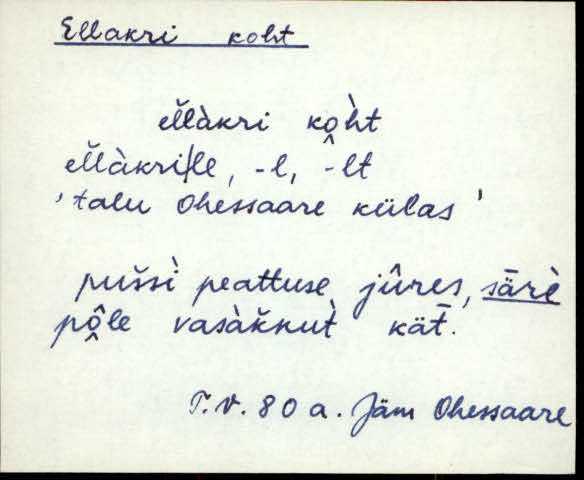 Ellakri koht
el̆l̆àkri ko̭h̀t
el̆l̆àkri/le, -l, -lt
'talu Ohessaare külas'
pušsì peattuse jûres, s̄ār̀è
pô̭le vasàk̆nut̀ kät̄.
T.V. 80 a. Jäm Ohessaare